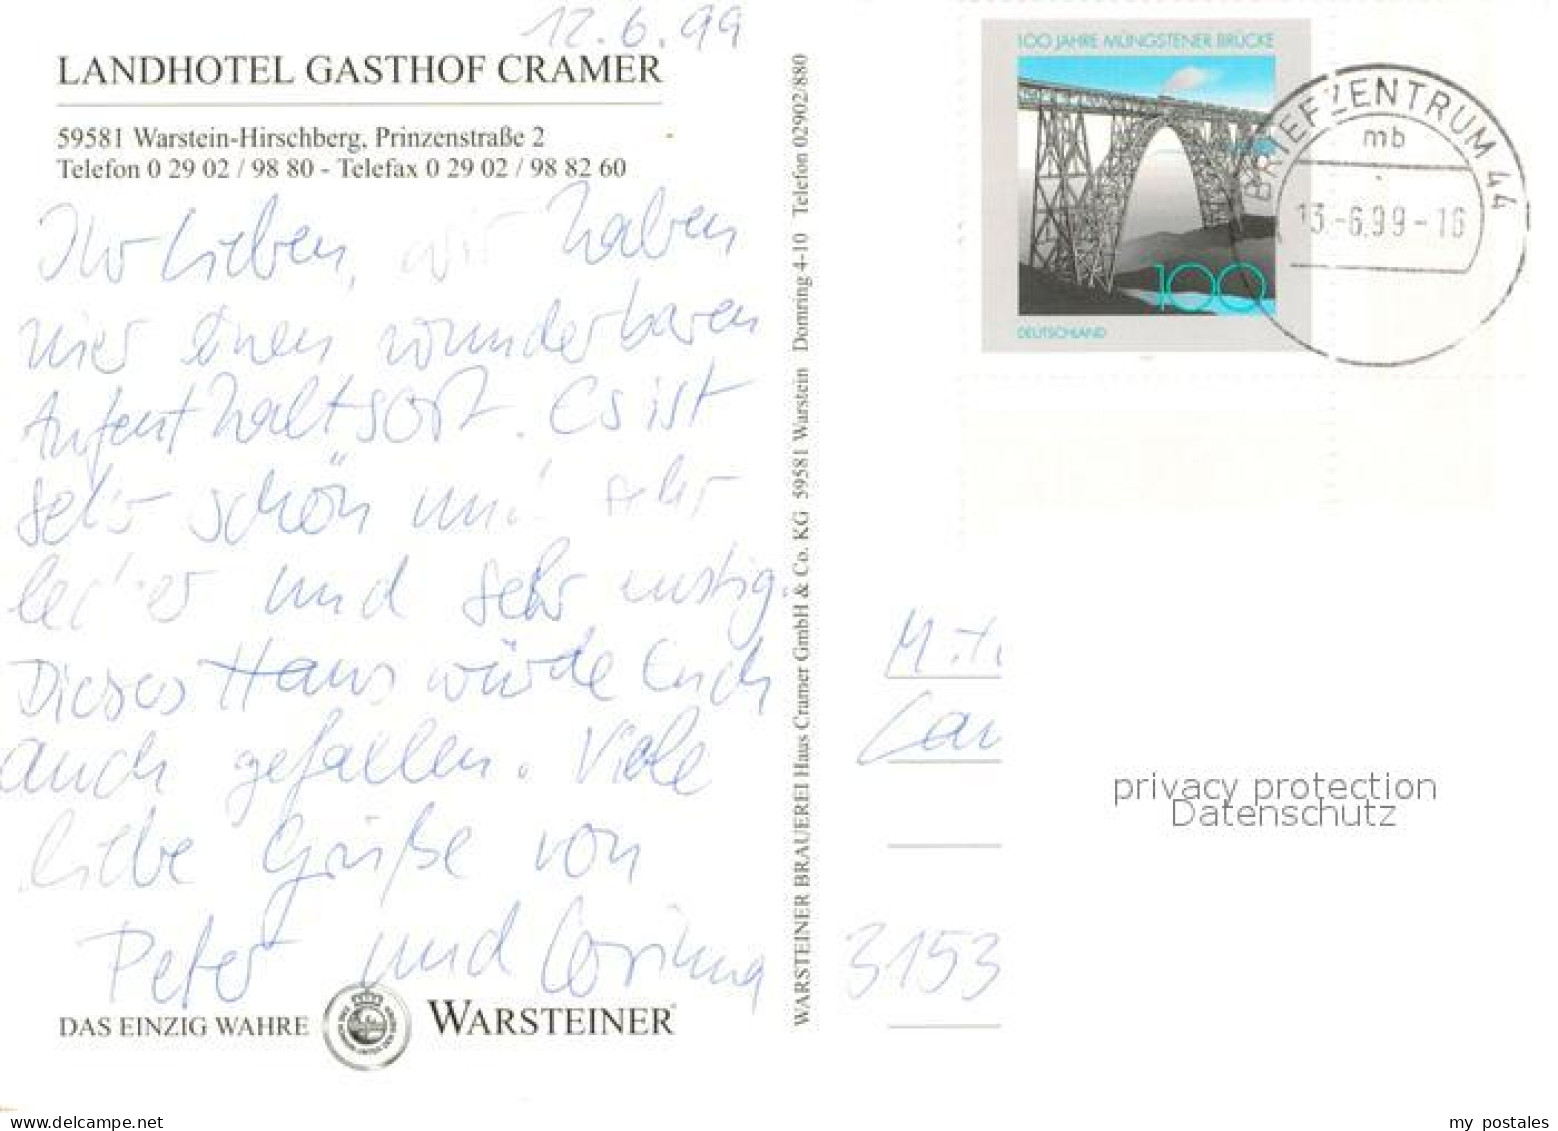 12.6.99
LANDHOTEL GASTHOF CRAMER
59581 Warstein-Hirschberg, Prinzenstraße 2
Telefon 0 29 02 / 98 80 - Telefax 0 29 02 / 98 82 60
Ihr Lieben, wir haben
hier einen wunderbaren
Aufenthaltsort. Es ist
sehr schön und sehr
lecker und sehr lustig.
Dieses Haus würde Euch
auch gefallen. Viele
liebe Grüße von
Peter und Corinna
DAS EINZIG WAHRE WARSTEINER
WARSTEINER BRAUEREI Haus Cramer GmbH & Co. KG 59581 Warstein Domring 4-10 Telefon 02902/880
100 JAHRE MÜNGSTENER BRÜCKE
100
DEUTSCHLAND
BRIEFZENTRUM 44
mb
13.-6.99-16
3153
privacy protection
Datenschutz
www.delcampe.net
my_postales